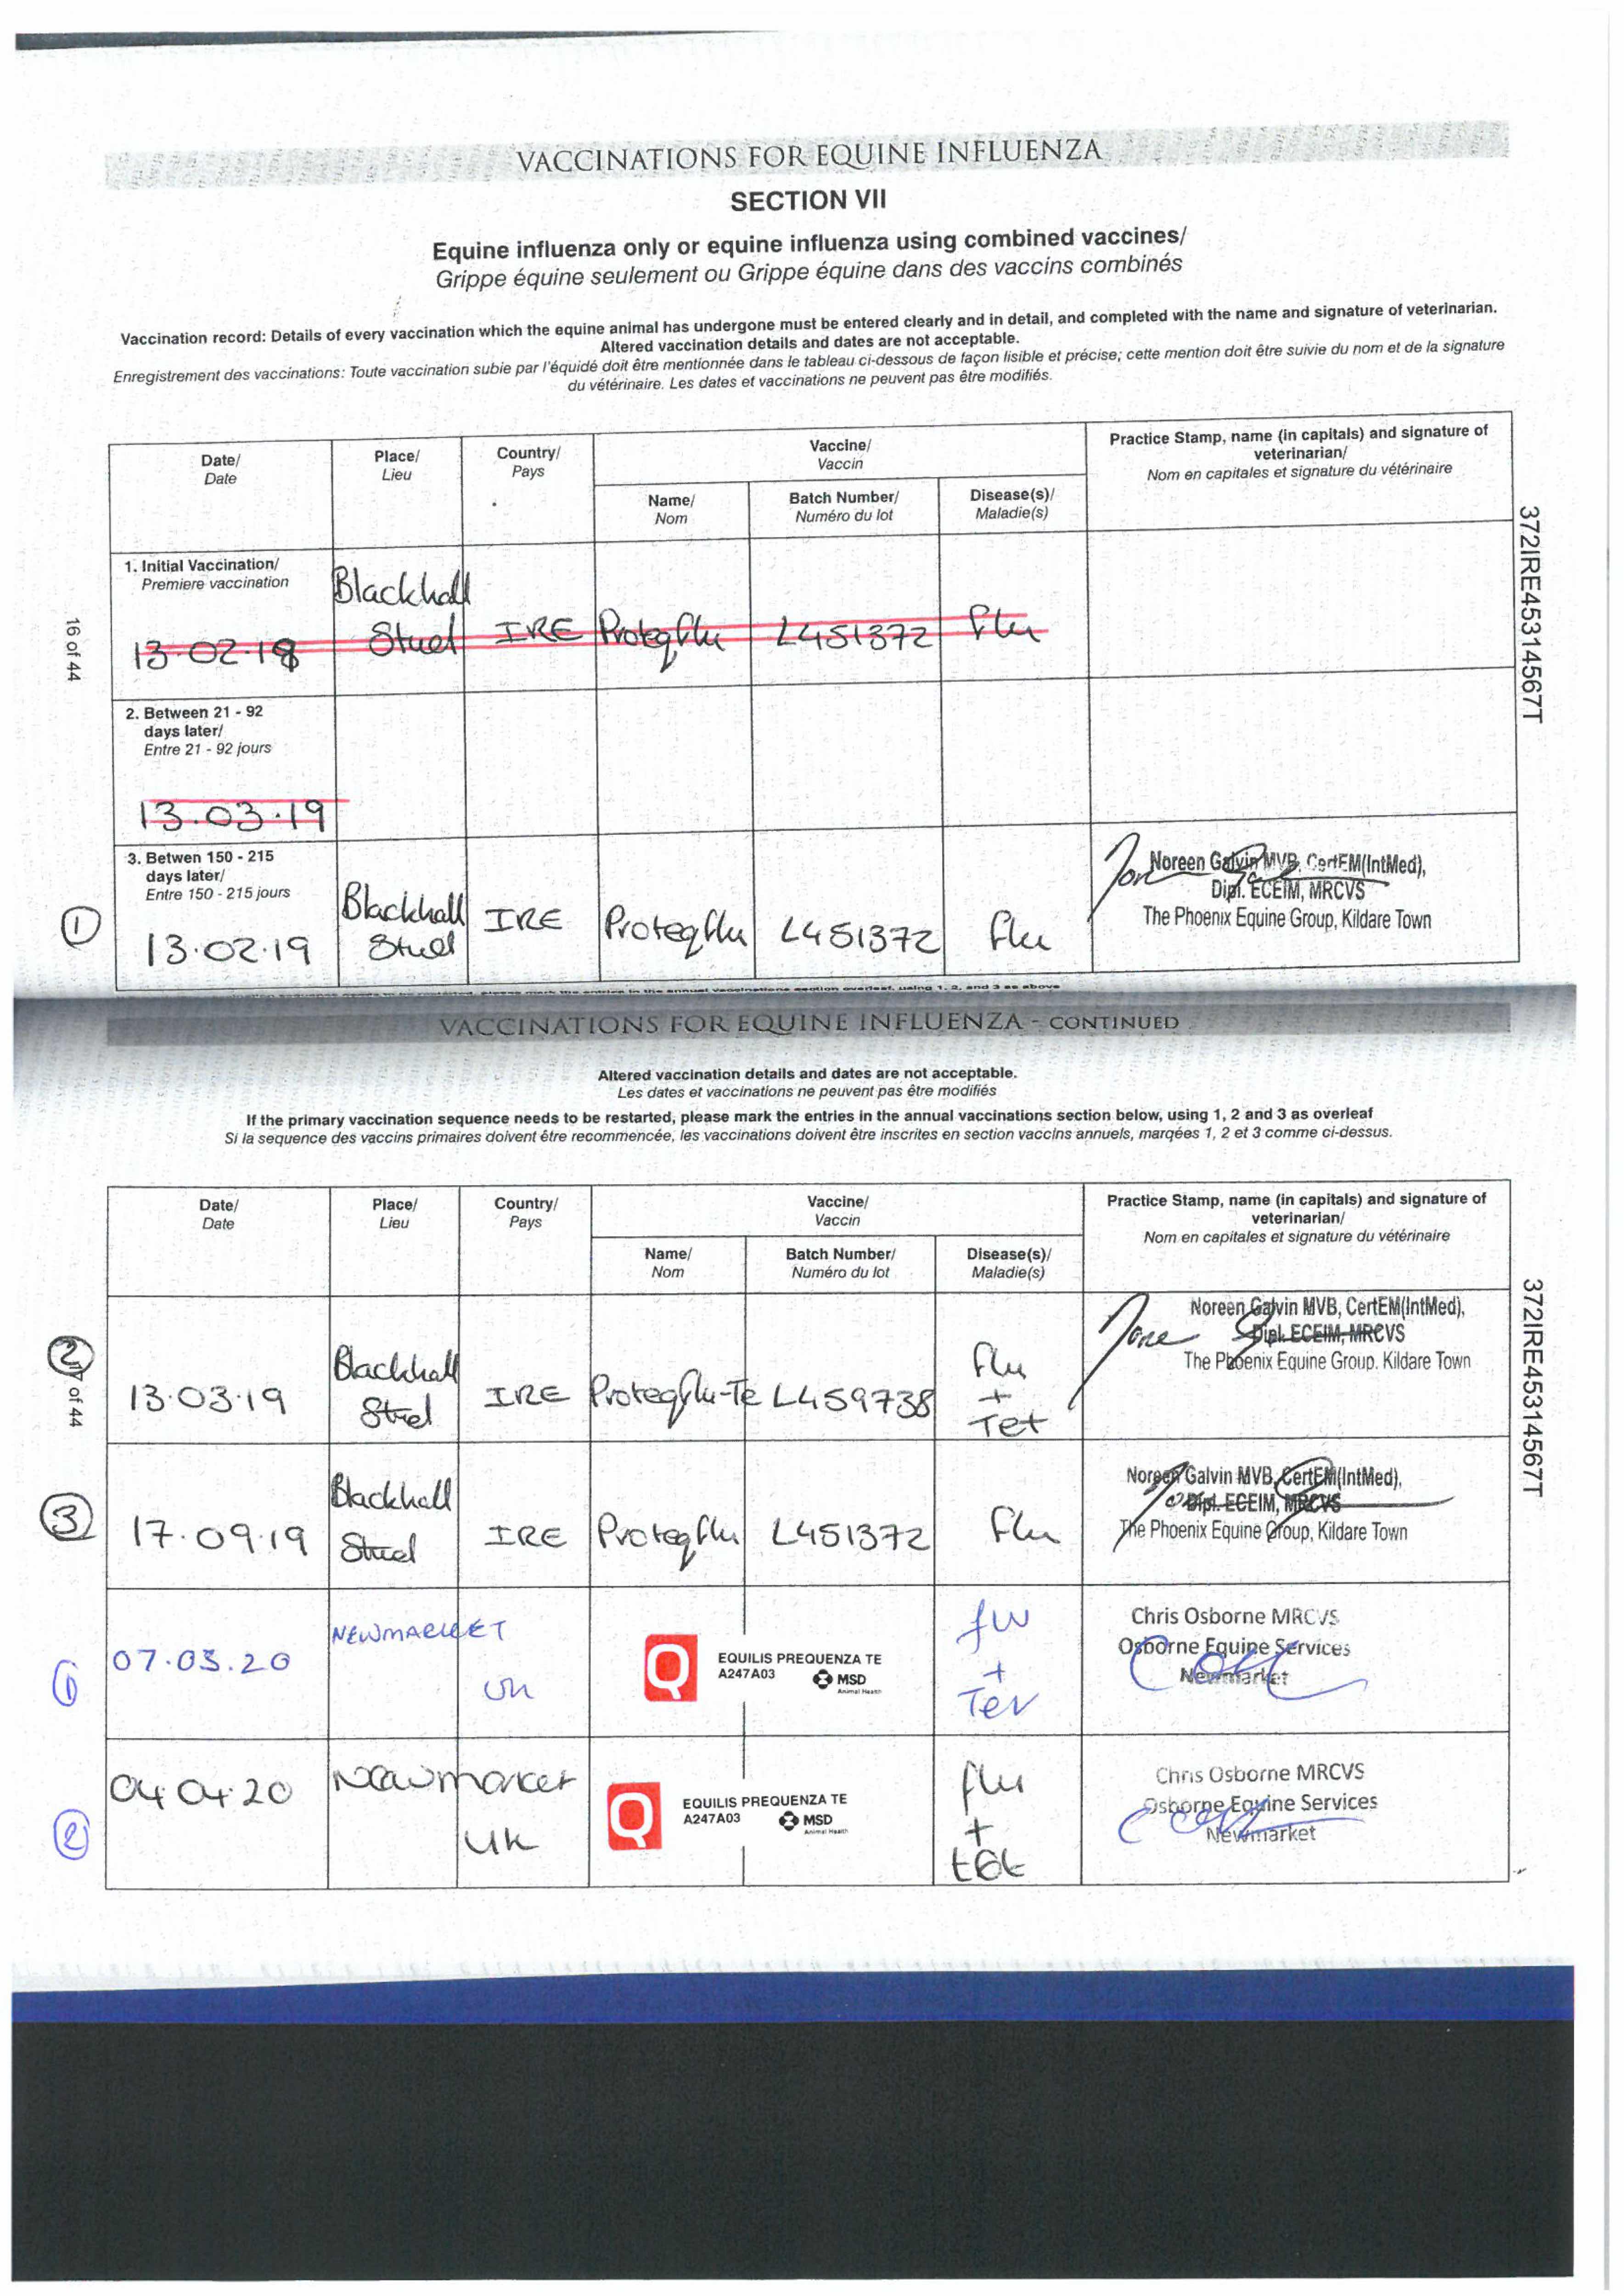 VACCINATIONS FOR EQUINE INFLUENZA
SECTION VII
Equine influenza only or equine influenza using combined vaccines/
Grippe équine seulement ou Grippe équine dans des vaccins combinés
Vaccination record: Details of every vaccination which the equine animal has undergone must be entered clearly and in detail, and completed with the name and signature of veterinarian.
Altered vaccination details and dates are not acceptable.
Enregistrement des vaccinations: Toute vaccination subie par l'équidé doit être mentionnée dans le tableau ci-dessous de façon lisible et précise; cette mention doit être suivie du nom et de la signature
du vétérinaire. Les dates et vaccinations ne peuvent pas être modifiés.
Date/
Date
Place/
Lieu
Country/
Pays
Vaccine/
Vaccin
Practice Stamp, name (in capitals) and signature of
veterinarian/
Nom en capitales et signature du vétérinaire
Name/
Nom
Batch Number/
Numéro du lot
Disease(s)/
Maladie(s)
1. Initial Vaccination/
Premiere vaccination
13.02.18
Blackhall
Stud
IRE
Proteqflu
L451372
flu
2. Between 21 - 92
days later/
Entre 21 - 92 jours
13.03.19
16 of 44
372IRE45314567T
3. Betwen 150 - 215
days later/
Entre 150 - 215 jours
1
13.02.19
Blackhall
Stud
IRE
Proteqflu
L451372
flu
Noreen Galvin MVB, CertEM(IntMed),
Dipl. ECEIM, MRCVS
The Phoenix Equine Group, Kildare Town
please mark the entries in the annual vaccinations section overleaf, using 1, 2, and 3 as above
VACCINATIONS FOR EQUINE INFLUENZA - CONTINUED
Altered vaccination details and dates are not acceptable.
Les dates et vaccinations ne peuvent pas être modifiés
If the primary vaccination sequence needs to be restarted, please mark the entries in the annual vaccinations section below, using 1, 2 and 3 as overleaf
Si la sequence des vaccins primaires doivent être recommencée, les vaccinations doivent être inscrites en section vaccins annuels, marqées 1, 2 et 3 comme ci-dessus.
Date/
Date
Place/
Lieu
Country/
Pays
Vaccine/
Vaccin
Practice Stamp, name (in capitals) and signature of
veterinarian/
Nom en capitales et signature du vétérinaire
Name/
Nom
Batch Number/
Numéro du lot
Disease(s)/
Maladie(s)
2
of 44
13.03.19
Blackhall
Stud
IRE
Proteqflu-Te
L459738
flu
+
Tet
Noreen Galvin MVB, CertEM(IntMed),
Dipl. ECEIM, MRCVS
The Phoenix Equine Group, Kildare Town
372IRE45314567T
3
17.09.19
Blackhall
Stud
IRE
Proteqflu
L451372
Flu
Noreen Galvin MVB, CertEM(IntMed),
Dipl. ECEIM, MRCVS
The Phoenix Equine Group, Kildare Town
1
07.03.20
NEWMARKET
UK
Q
EQUILIS PREQUENZA TE
A247A03
MSD
Animal Health
flu
+
Tet
Chris Osborne MRCVS
Osborne Equine Services
Newmarket
2
04.04.20
Newmarket
UK
Q
EQUILIS PREQUENZA TE
A247A03
MSD
Animal Health
flu
+
tet
Chris Osborne MRCVS
Osborne Equine Services
Newmarket